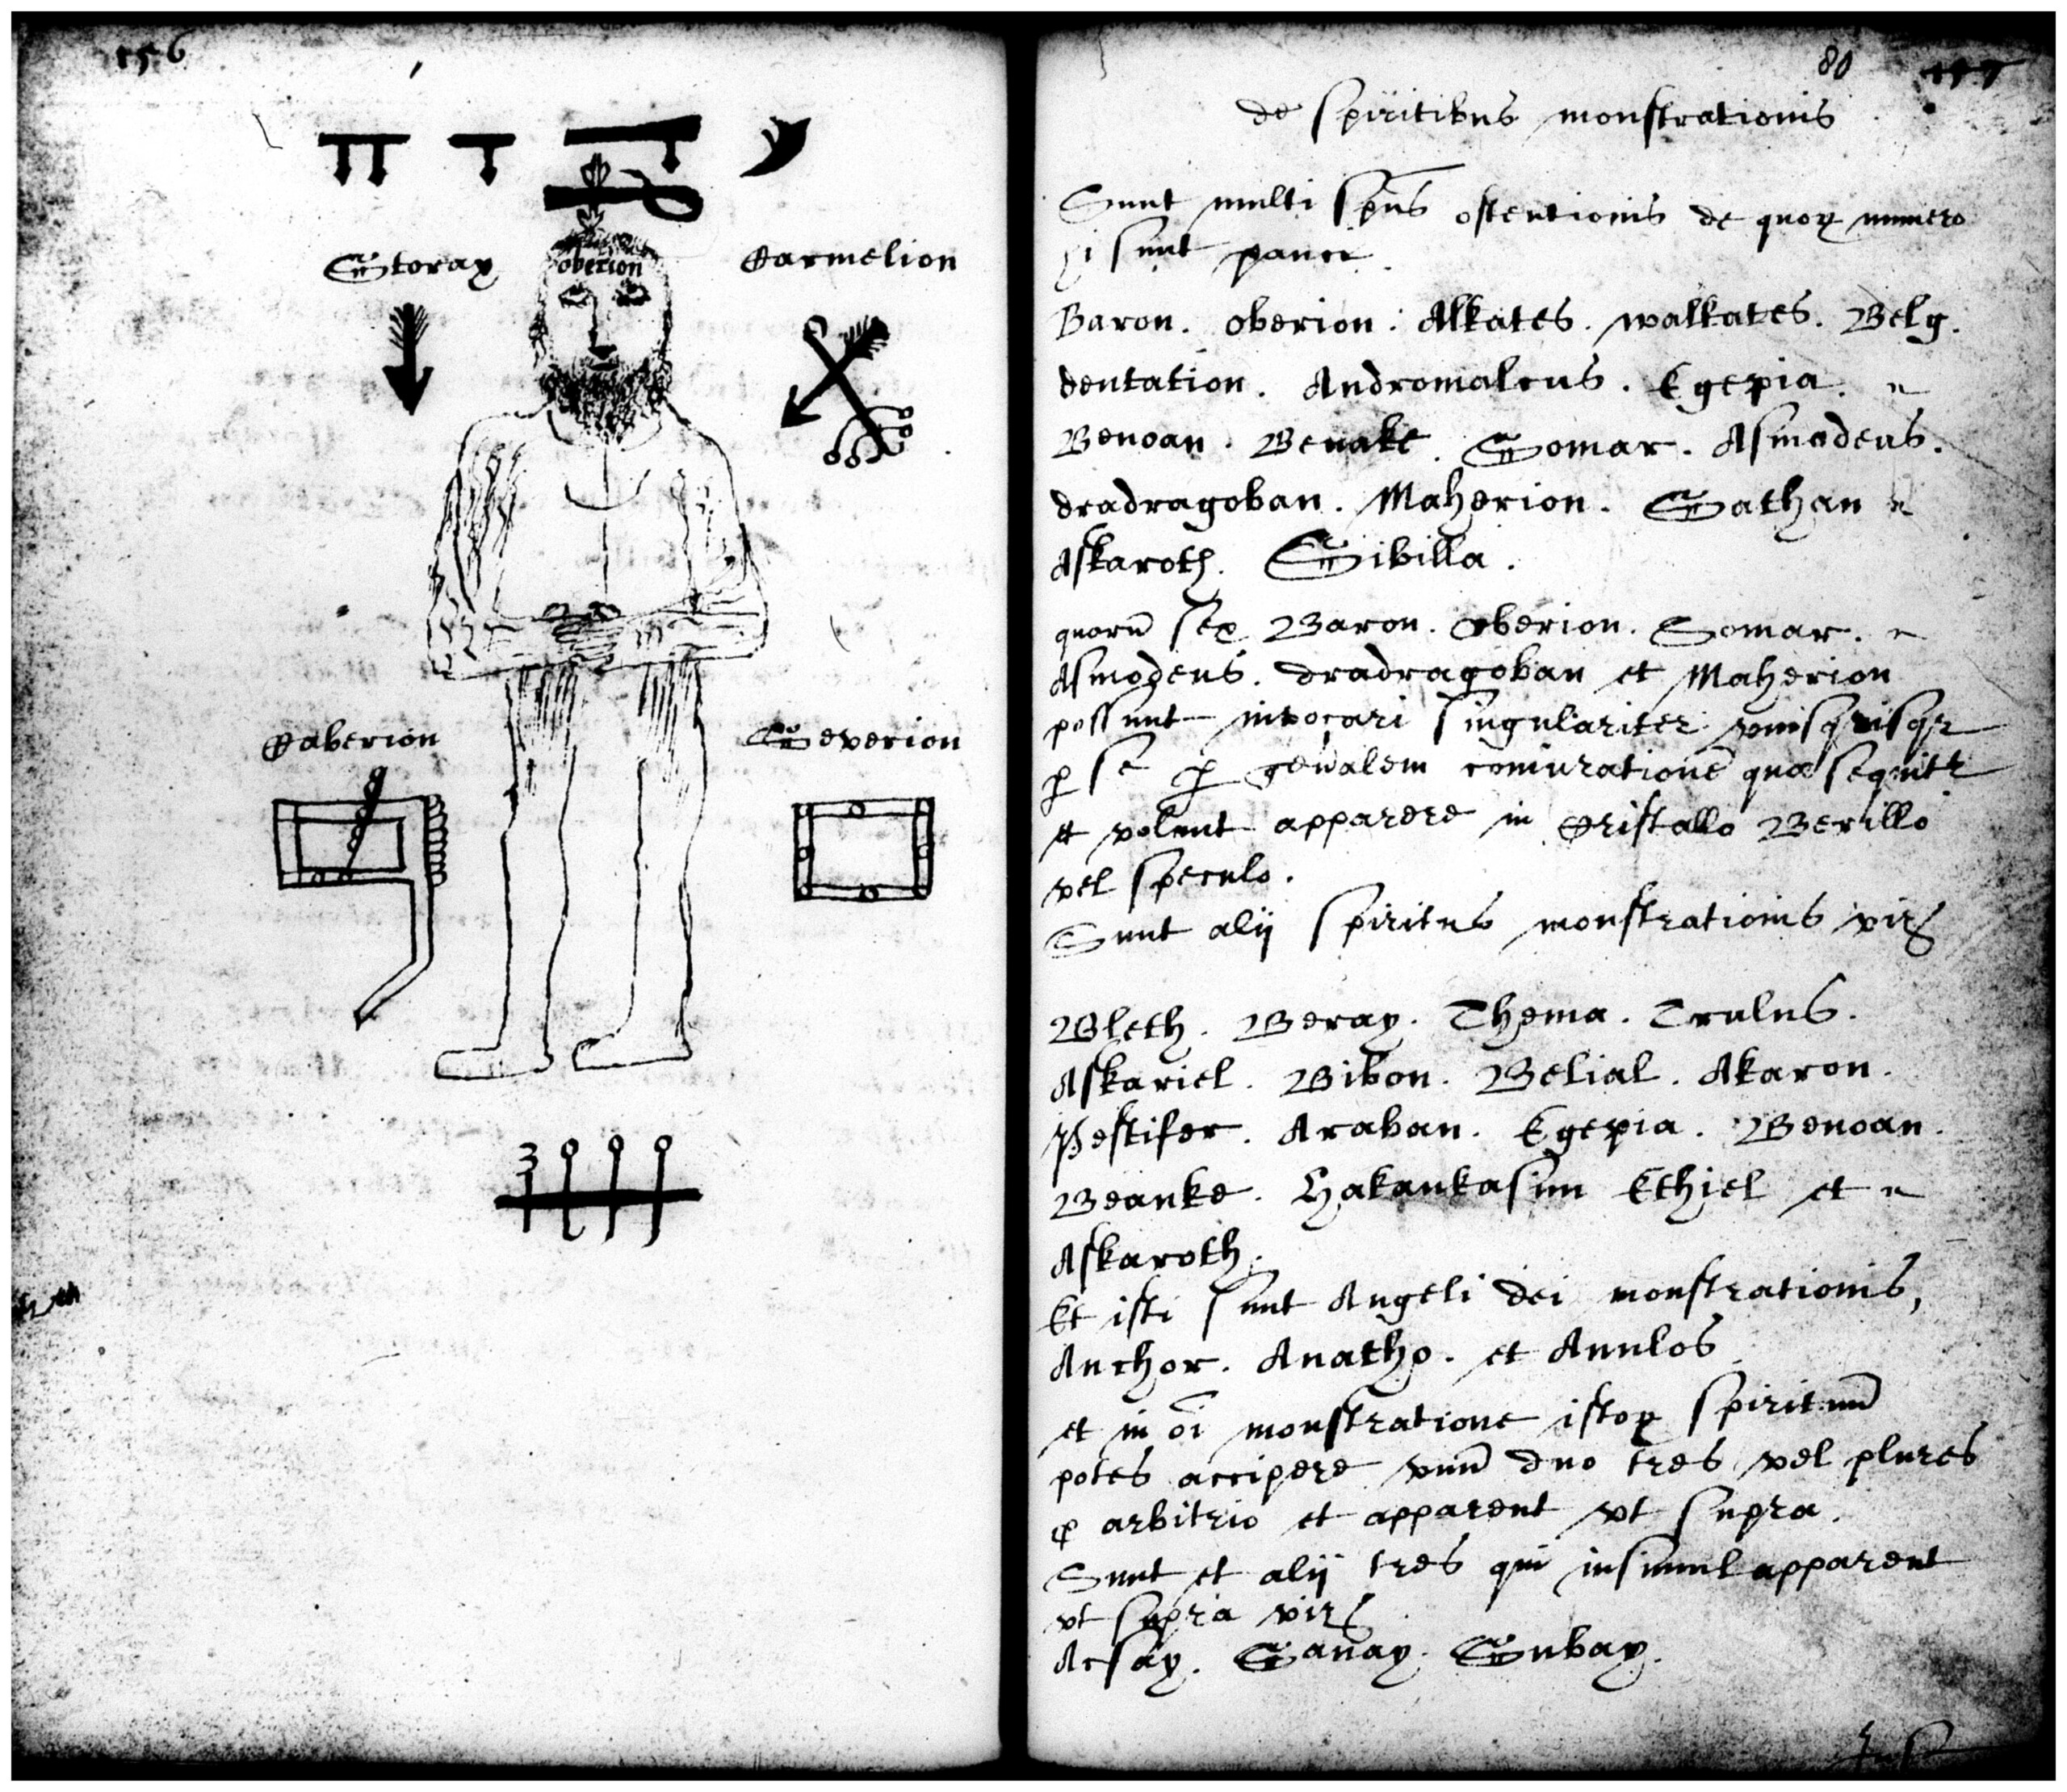 156
Storax
oberion
Carmelion
Caberion
Severion
80
157
de spiritibus monstrationis
Sunt multi spūs ostentionis de quoꝝ numero
hi sunt pauci
Baron. oberion. Alkates. walkates. Belg.
dentation. Andromalcus. Egepia.
Benoan. Benake. Somar. Asmodeus.
dradragoban. Maherion. Sathan
Askaroth. Sibilla.
quorū sex Baron. oberion. Somar.
Asmodeus. dradragoban et Maherion
possunt invocari singulariter vnusquisqꝫ
ꝑ se ꝑ genālem coniurationē quæ sequitr
et volunt apparere in Cristallo Berillo
vel speculo.
Sunt alij spiritus monstrationis
Bleth. Beray. Thema. Trulus.
Askariel. Bibon. Belial. Akaron.
Pestifer. Araban. Egepia. Benoan.
Beanke. Hakankasun Ethiel et
Askaroth.
Et isti sunt Angeli dei monstrationis,
Anchor. Anatho. et Anulos
et in oī monstratione istoꝝ spirituū
potes accipere vnū duo tres vel plures
ꝓ arbitrio et apparent vt supra.
Sunt et alij tres qui insimul apparent
vt supra
Acsay. Sanay. Subay.